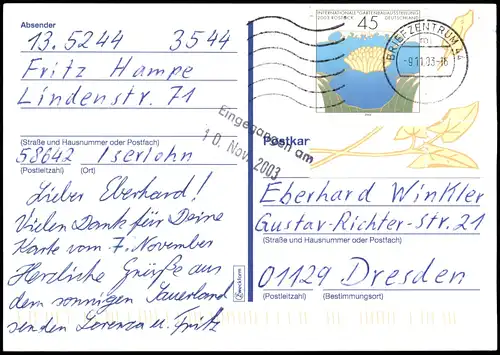 Absender
13.5244 3544
Fritz Hampe
Lindenstr. 71
(Straße und Hausnummer oder Postfach)
58642 Iserlohn
(Postleitzahl) (Ort)
Lieber Eberhard!
Vielen Dank für Deine
Karte vom 7. November
Herzliche Grüße aus
dem sonnigen Sauerland
senden Lorenza u. Fritz
Zweckform
INTERNATIONALE GARTENBAUAUSSTELLUNG
2003 ROSTOCK DEUTSCHLAND
45
BRIEFZENTRUM 44
-9.11.03-18
Eingegangen am
10. Nov. 2003
Postkar
Eberhard Winkler
Gustav-Richter-Str. 21
(Straße und Hausnummer oder Postfach)
01129 Dresden
(Postleitzahl) (Bestimmungsort)